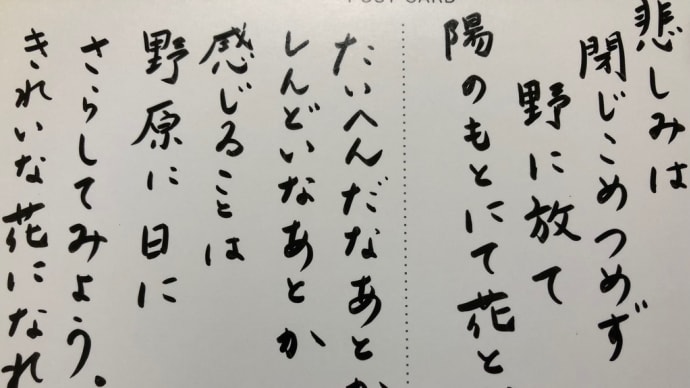 POST CARD
悲しみは
閉じこめつめず
野に放て
陽のもとにて花と
たいへんだなあとか
しんどいなあとか
感じることは
野原に日に
さらしてみよう。
きれいな花になれ